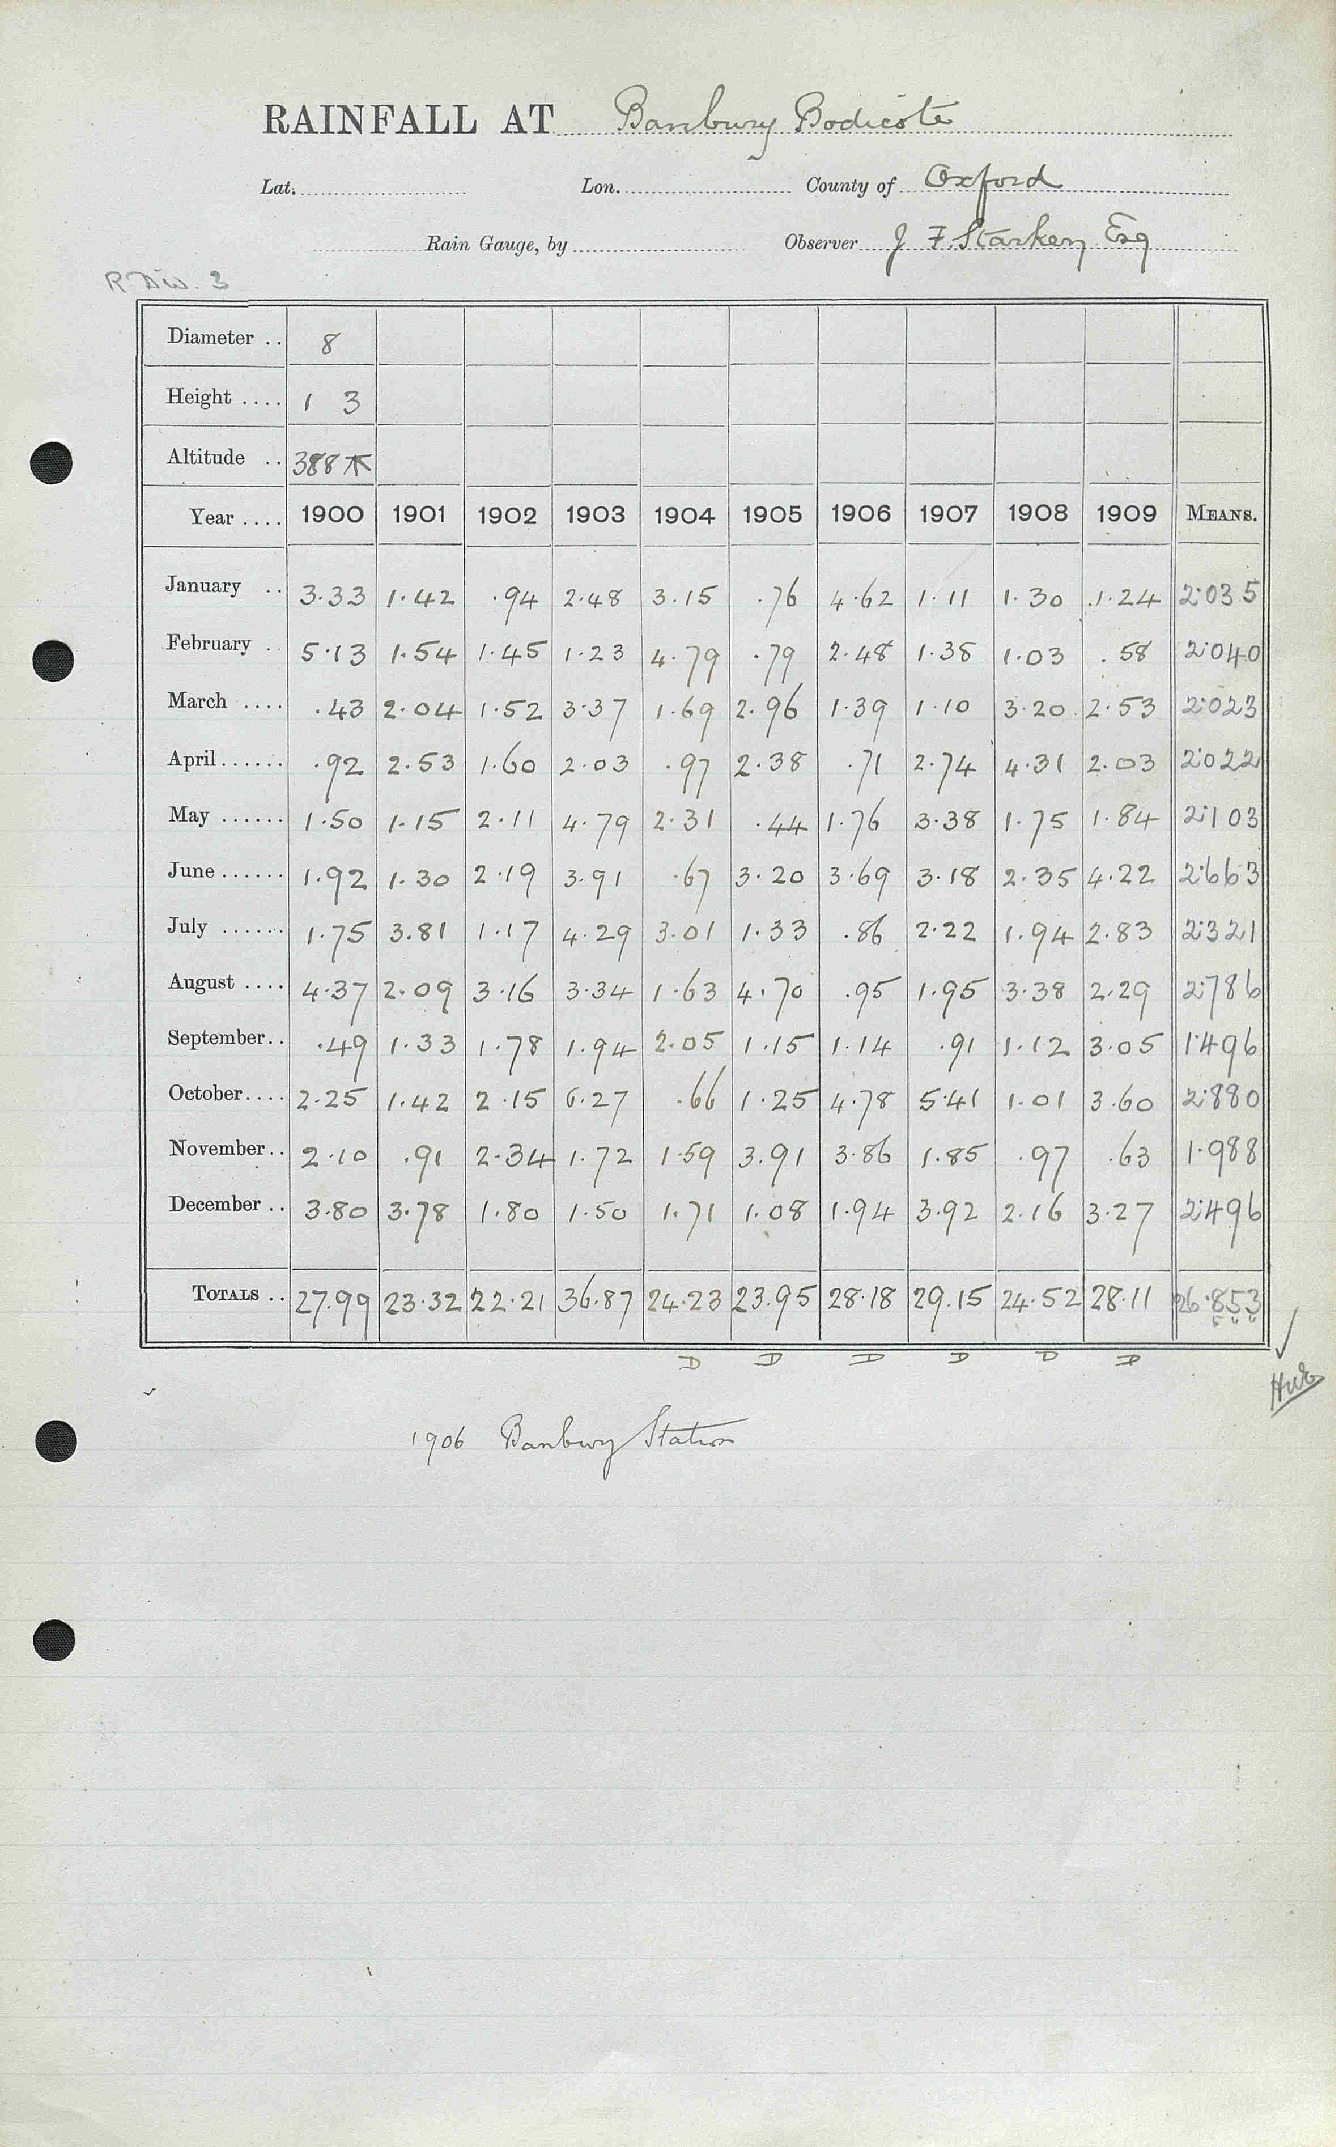 RAINFALL AT Banbury Bodicote
Lat. Lon. County of Oxford
Rain Gauge, by Observer J F. Starkey Esq
R Div. 3
Diameter .. 8
Height .... 1 3
Altitude .. 388
Year .... 1900 1901 1902 1903 1904 1905 1906 1907 1908 1909 MEANS.
January .. 3.33 1.42 .94 2.48 3.15 .76 4.62 1.11 1.30 1.24 2.035
February .. 5.13 1.54 1.45 1.23 4.79 .79 2.48 1.38 1.03 .58 2.040
March .... .43 2.04 1.52 3.37 1.69 2.96 1.39 1.10 3.20 2.53 2.023
April ...... .92 2.53 1.60 2.03 .97 2.38 .71 2.74 4.31 2.03 2.022
May ...... 1.50 1.15 2.11 4.79 2.31 .44 1.76 3.38 1.75 1.84 2.103
June ...... 1.92 1.30 2.19 3.91 .67 3.20 3.69 3.18 2.35 4.22 2.663
July ...... 1.75 3.81 1.17 4.29 3.01 1.33 .86 2.22 1.94 2.83 2.321
August .... 4.37 2.09 3.16 3.34 1.63 4.70 .95 1.95 3.38 2.29 2.786
September .. .49 1.33 1.78 1.94 2.05 1.15 1.14 .91 1.12 3.05 1.496
October .... 2.25 1.42 2.15 6.27 .66 1.25 4.78 5.41 1.01 3.60 2.880
November .. 2.10 .91 2.34 1.72 1.59 3.91 3.86 1.85 .97 .63 1.988
December .. 3.80 3.78 1.80 1.50 1.71 1.08 1.94 3.92 2.16 3.27 2.496
TOTALS .. 27.99 23.32 22.21 36.87 24.23 23.95 28.18 29.15 24.52 28.11 26.853
D D D D D D
1906 Banbury Station